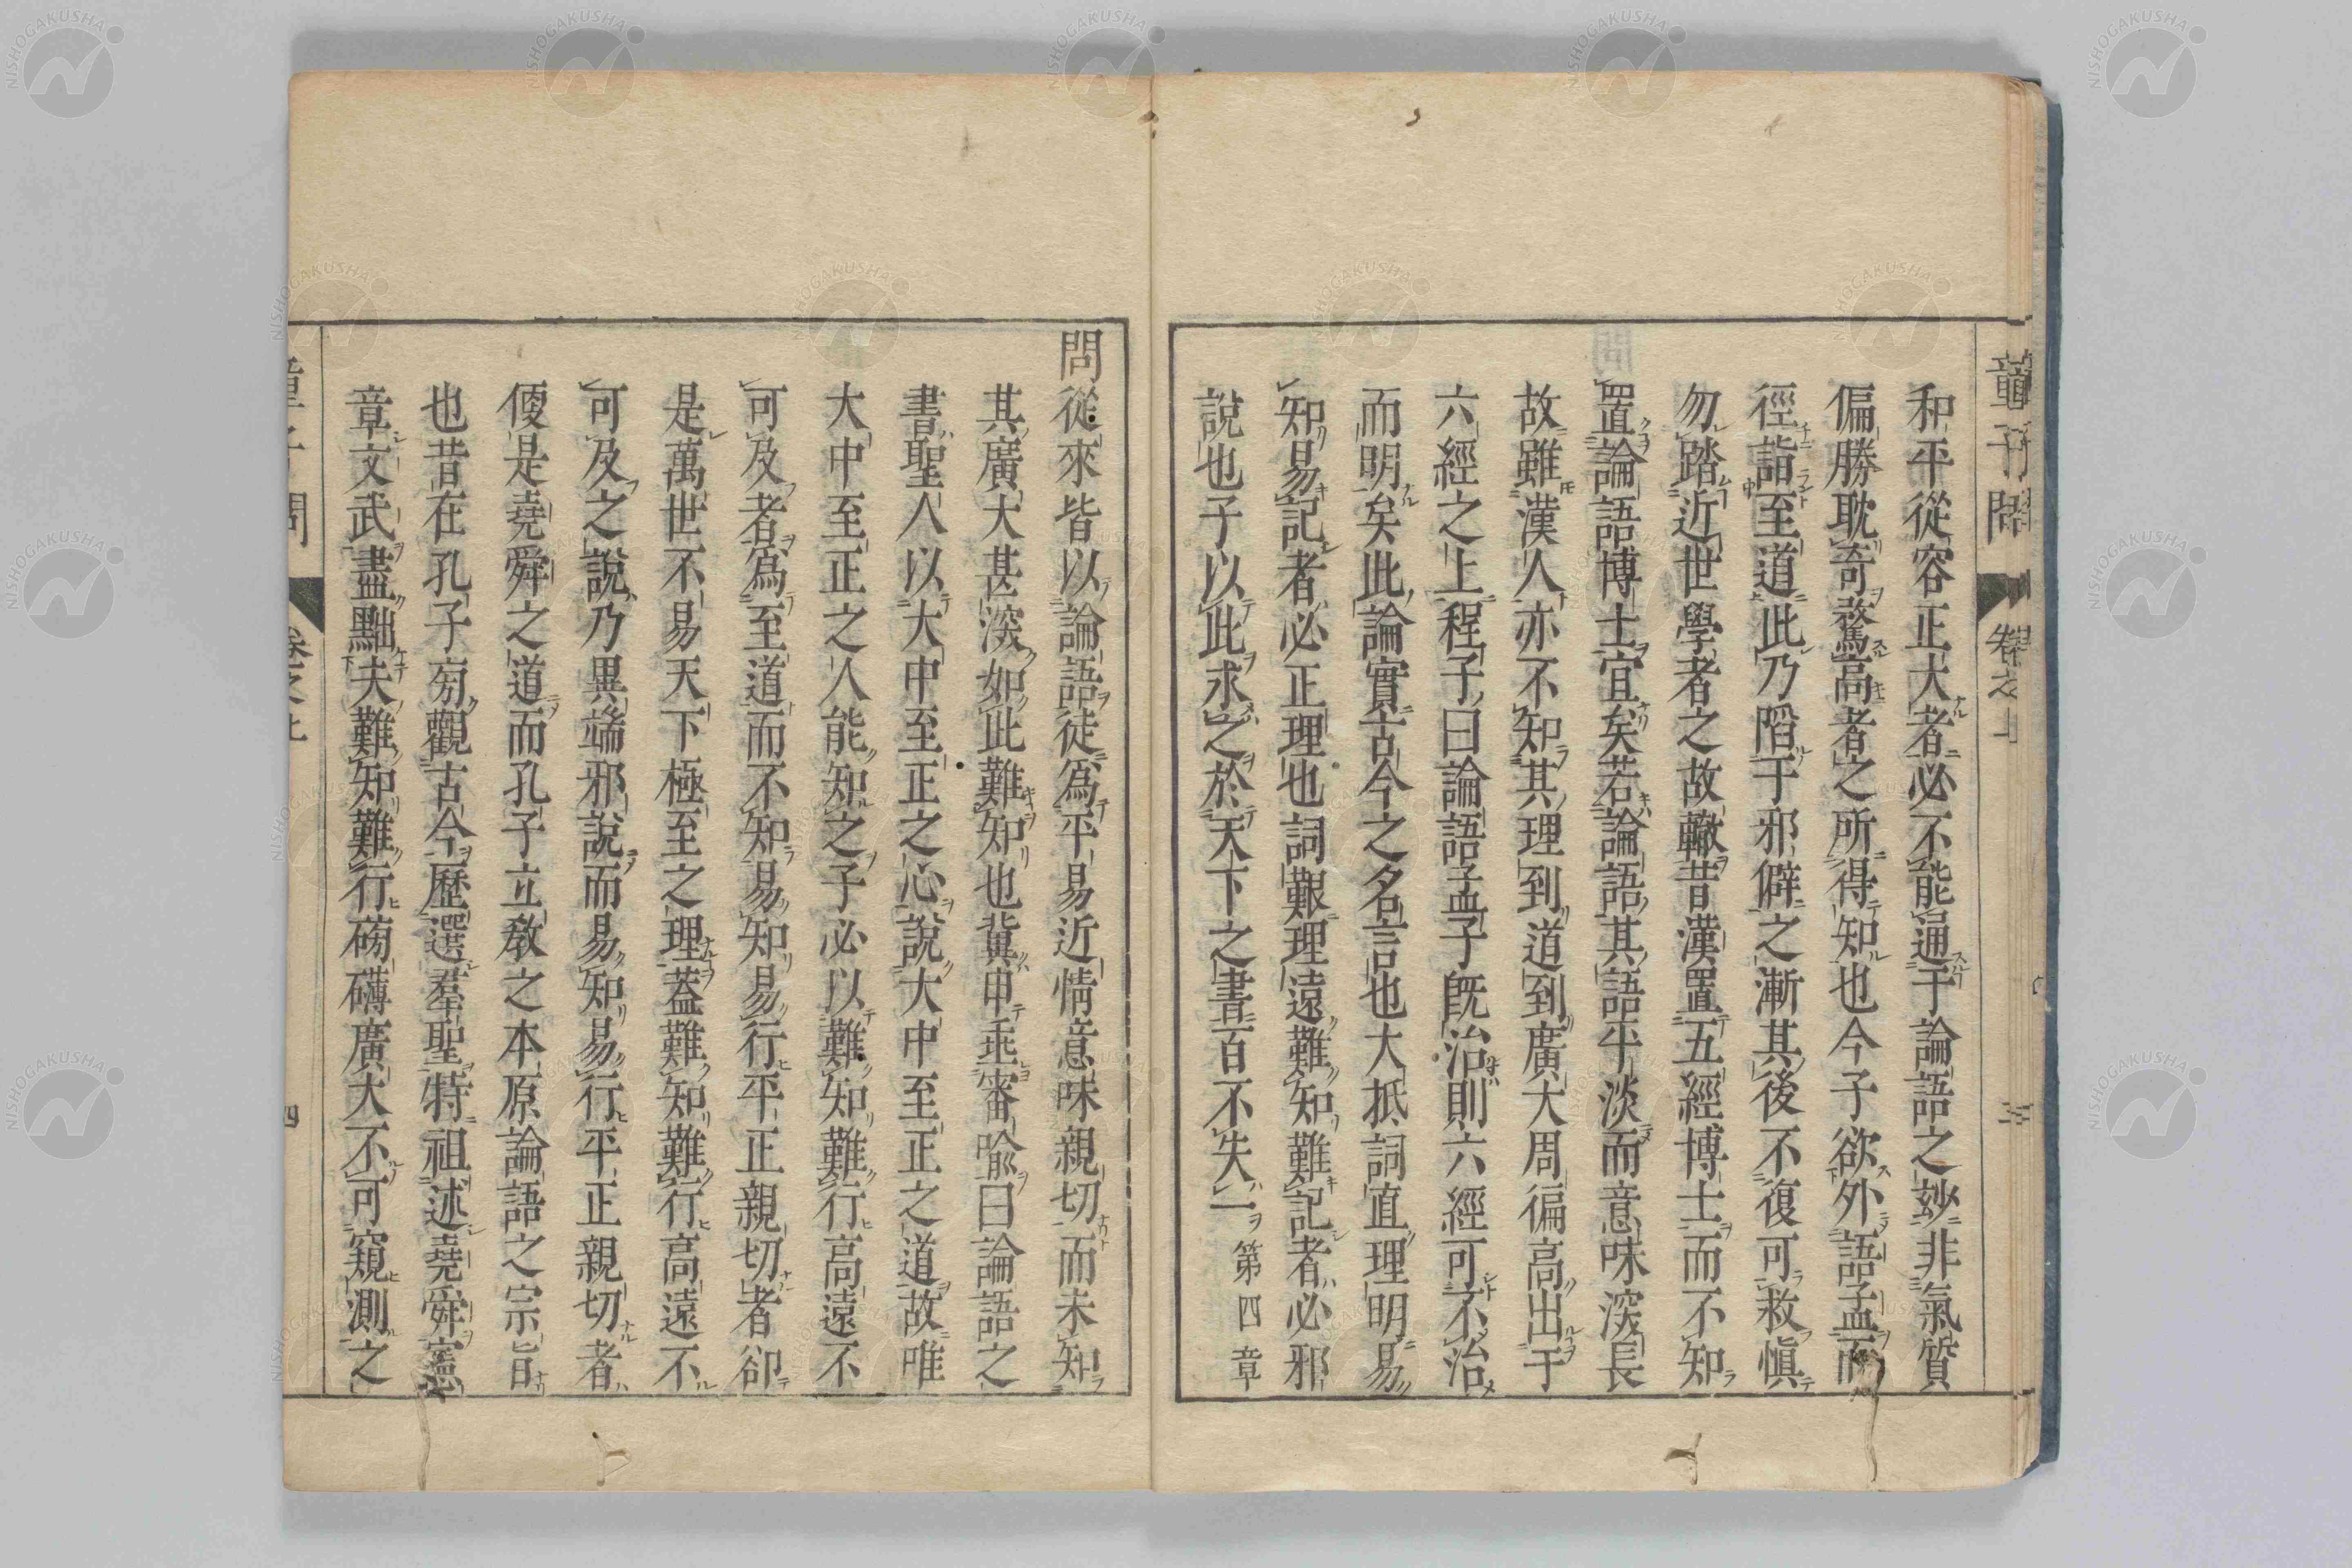 童子問 卷之上 三
和平從容正大者必不能通于論語之妙非氣質
偏勝耽奇騖高者之所得知也今子欲外語孟而
徑詣至道此乃陷于邪僻之漸其後不復可救愼
勿踏近世學者之故轍昔漢置五經博士而不知
置論語博士宜矣若論語其語平淡而意味深長
故雖漢人亦不知其理到道到廣大周徧高出于
六經之上程子曰論語孟子既治則六經可不治
而明矣此論實古今之名言也大抵詞直理明易
知易記者必正理也詞艱理遠難知難記者必邪
說也子以此求之於天下之書百不失一 第四章
問從來皆以論語徒爲平易近情意味親切而未知
其廣大甚深如此難知也冀申垂審喩曰論語之
書聖人以大中至正之心說大中至正之道故唯
大中至正之人能知之子必以難知難行高遠不
可及者爲至道而不知易知易行平正親切者卻
是萬世不易天下極至之理蓋難知難行高遠不
可及之說乃異端邪說而易知易行平正親切者
便是堯舜之道而孔子立敎之本原論語之宗旨
也昔在孔子旁觀古今歷選羣聖特祖述堯舜憲
章文武盡黜夫難知難行磅礴廣大不可窺測之
童子問 卷之上 四
NISHOGAKUSHA